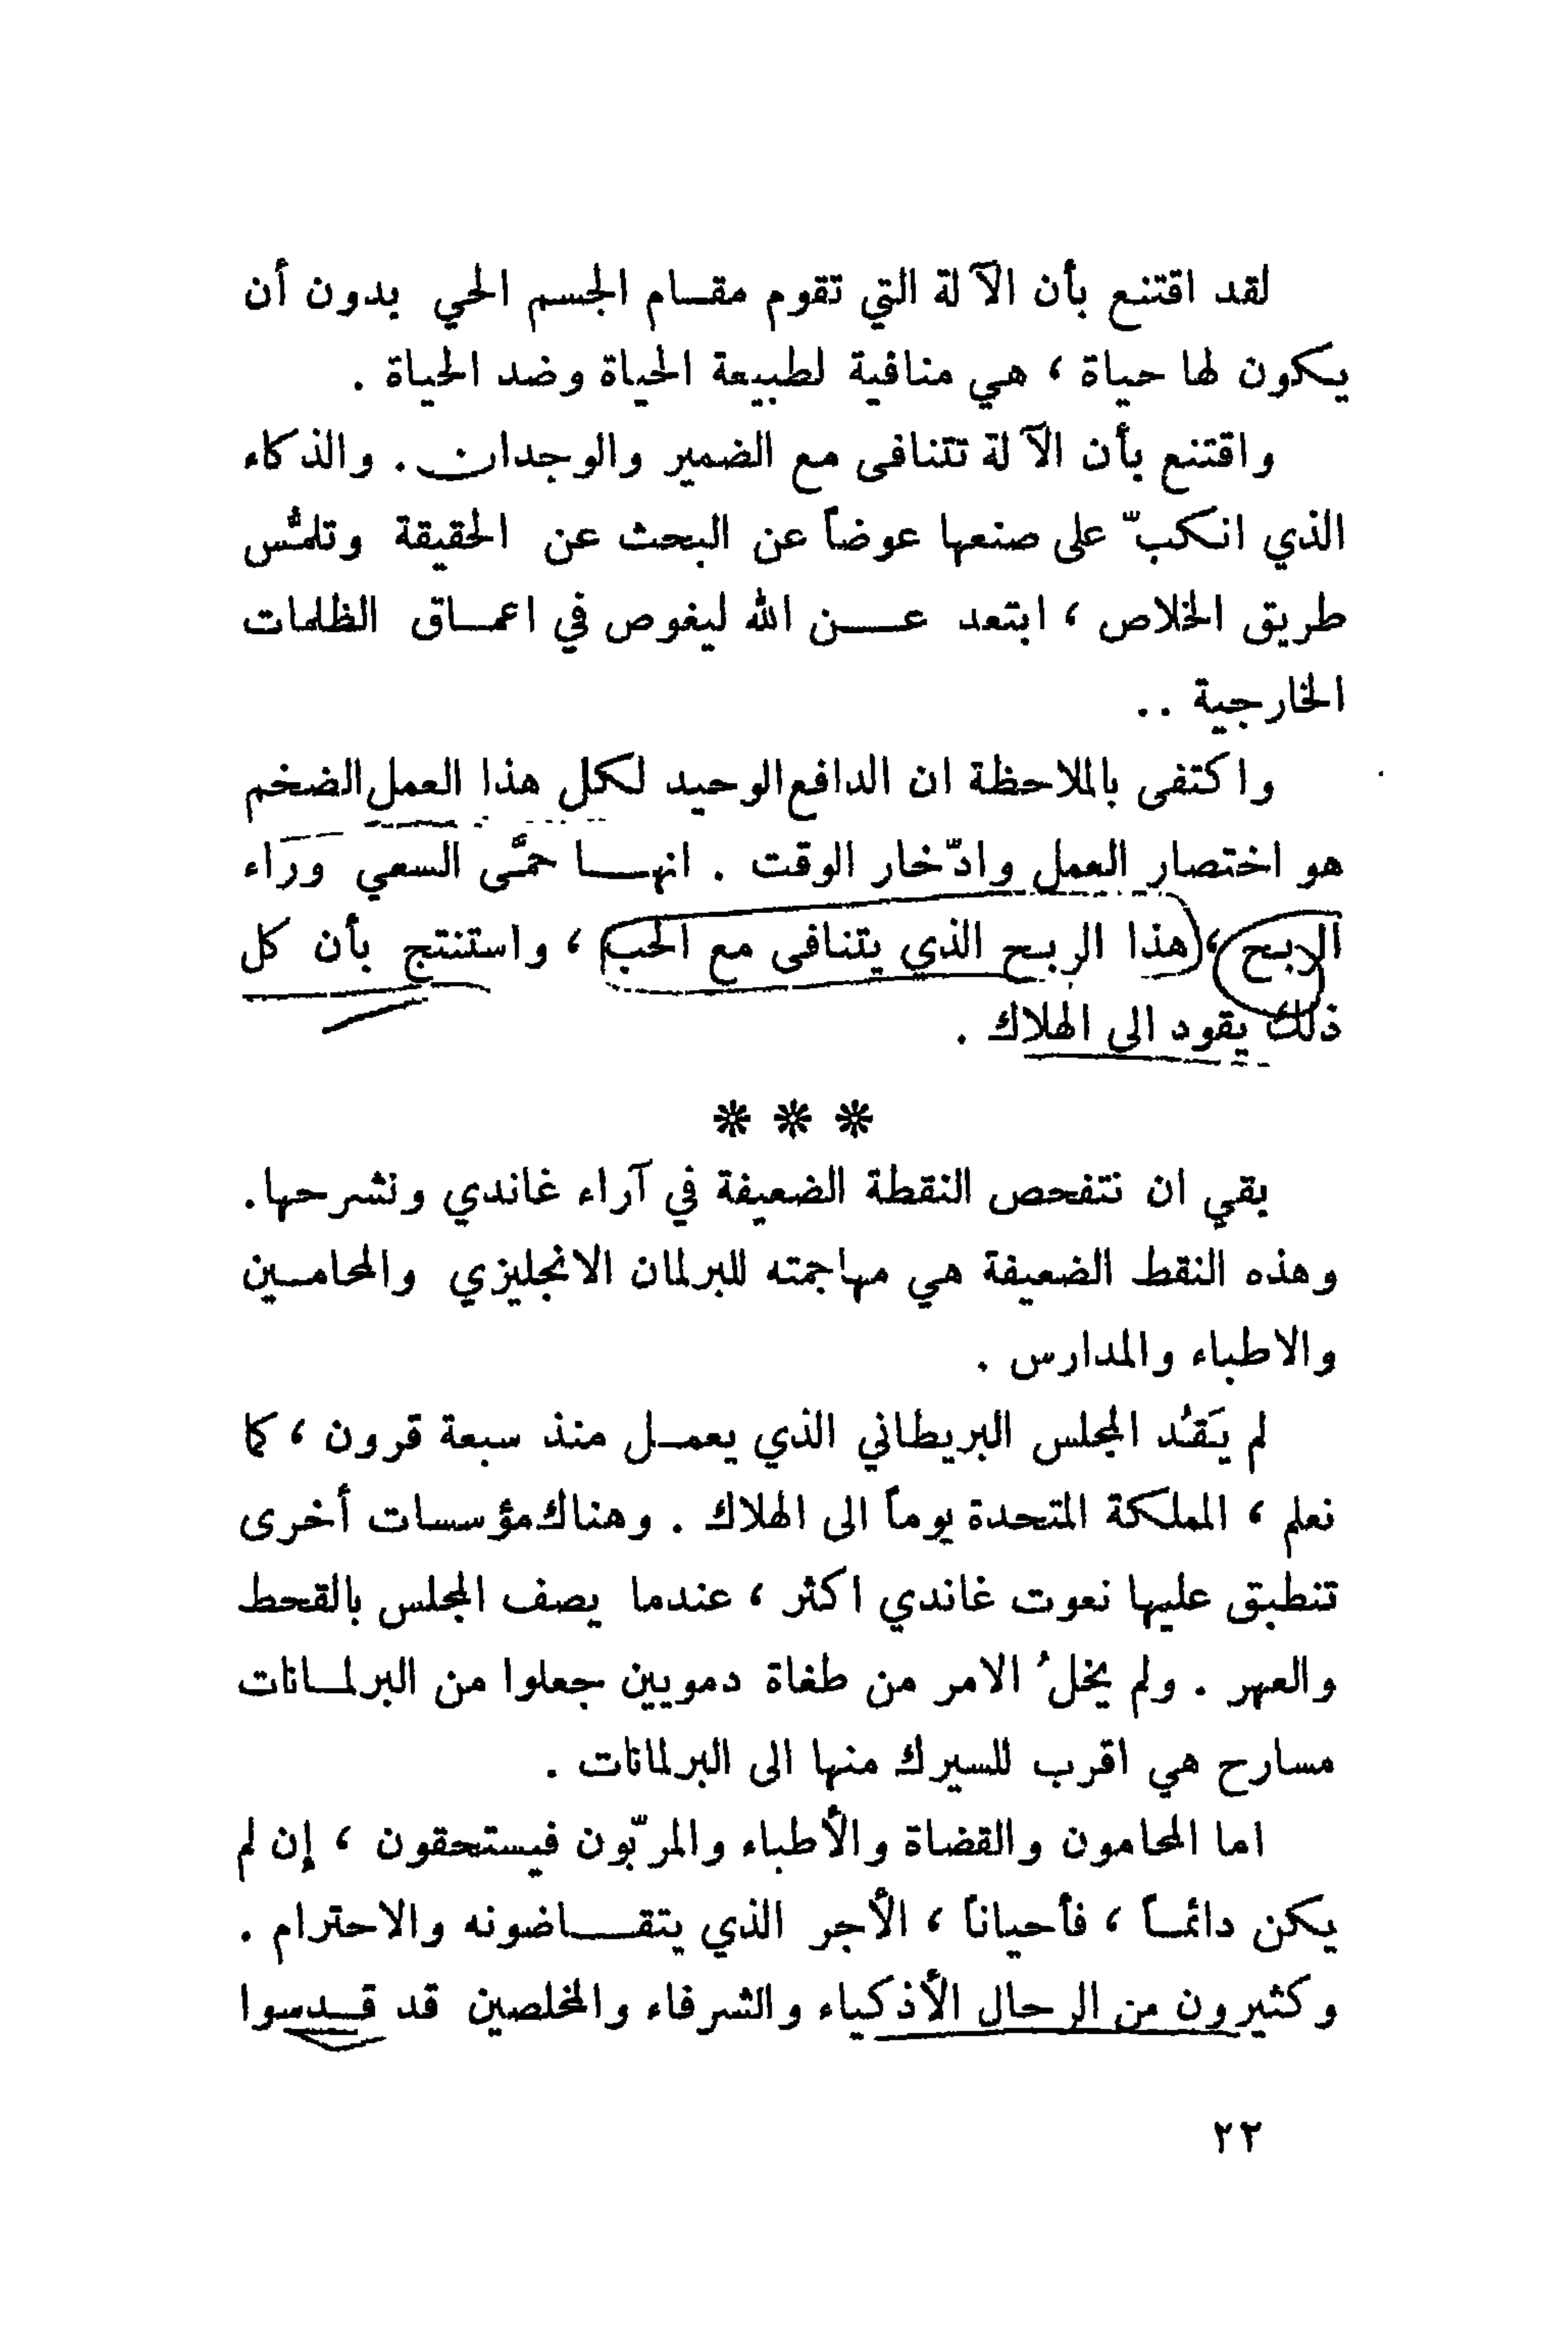 لقد اقتنع بأن الآلة التي تقوم مقام الجسم الحي بدون أن
يكون لها حياة ، هي منافية لطبيعة الحياة وضد الحياة .
واقتنع بأن الآلة تتنافى مع الضمير والوجدان . والذكاء
الذي انكبّ على صنعها عوضاً عن البحث عن الحقيقة وتلمُّس
طريق الخلاص ، ابتعد عن الله ليغوص في اعماق الظلمات
الخارجية . .
واكتفى بالملاحظة ان الدافع الوحيد لكل هذا العمل الضخم
هو اختصار العمل وادّخار الوقت . انها حمَّى السعي وراء
الربح ، هذا الربح الذي يتنافى مع الحب ، واستنتج بأن كل
ذلك يقود الى الهلاك .
* * *
بقي ان نتفحص النقطة الضعيفة في آراء غاندي ونشرحها .
وهذه النقط الضعيفة هي مهاجمته للبرلمان الانجليزي والمحامين
والاطباء والمدارس .
لم يَقُد المجلس البريطاني الذي يعمل منذ سبعة قرون ، كما
نعلم ، المملكة المتحدة يوماً الى الهلاك . وهناك مؤسسات أخرى
تنطبق عليها نعوت غاندي اكثر ، عندما يصف المجلس بالقحط
والعهر . ولم يخلُ الامر من طغاة دمويين جعلوا من البرلمانات
مسارح هي اقرب للسيرك منها الى البرلمانات .
اما المحامون والقضاة والأطباء والمربّون فيستحقون ، إن لم
يكن دائماً ، فأحياناً ، الأجر الذي يتقاضونه والاحترام .
وكثيرون من الرجال الأذكياء والشرفاء والمخلصين قد قدسوا
٢٢